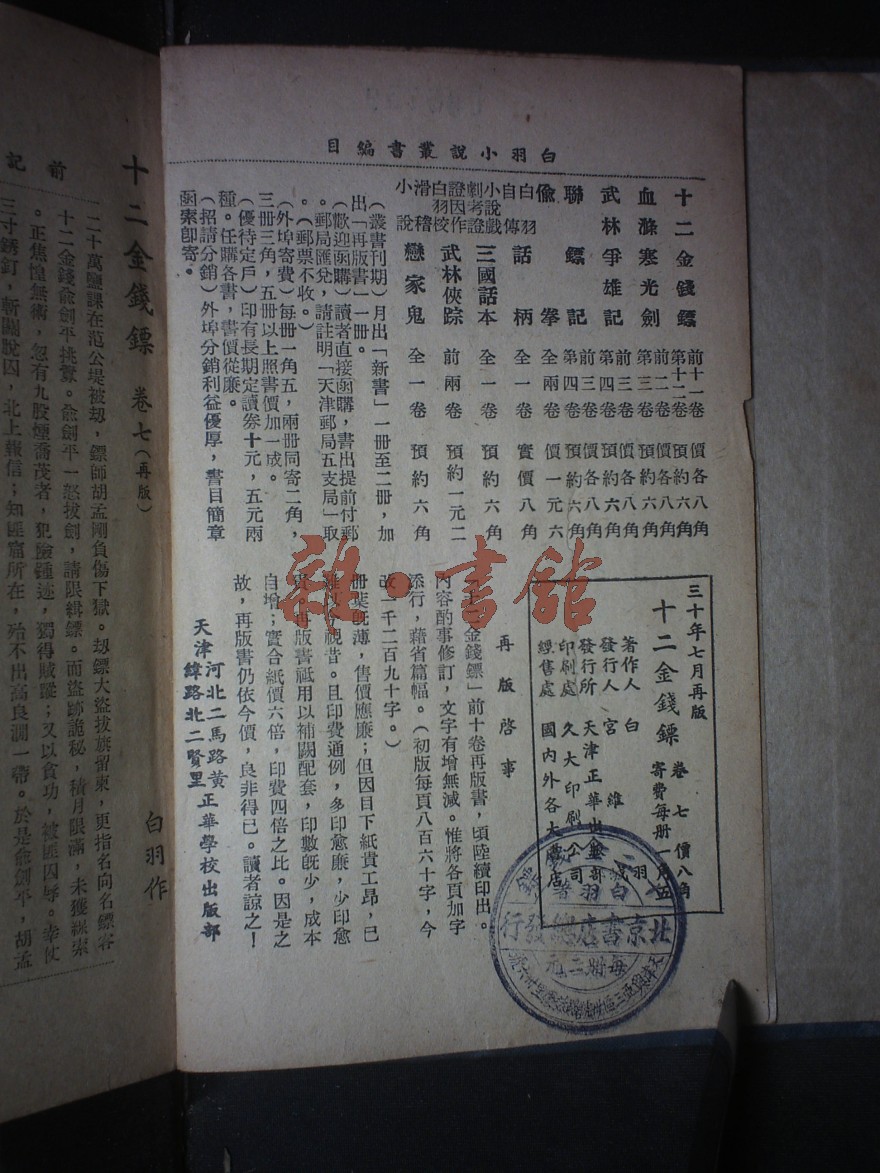 白羽小說叢書編目
十二金錢鏢 前十一卷 價各八角
第十二卷 預約六角
血滌寒光劍 前二卷 價各八角
第三卷 預約六角
武林爭雄記 前三卷 價各八角
第四卷 預約六角
聯鏢記 前三卷 價各八角
第四卷 預約六角
偷拳 全兩卷 價一元六
白羽自傳 話柄 全一卷 實價八角
小說戲劇考證 三國話本 全一卷 預約六角
證因作白羽校 武林俠踪 前兩卷 預約一元二
滑稽小說 戀家鬼 全一卷 預約六角
(叢書刊期)月出「新書」一冊至二冊,加
出「再版書」一冊。
(歡迎函購)讀者直接函購,書出提前付郵
。郵局匯兌,請註明「天津郵局五支局」取
。(郵票不收。)
(外埠寄費)每冊一角五,兩冊同寄二角,
三冊三角,五冊以上照書價加一成。
(優待定戶)印有長期定讀券十元,五元兩
種。任購各書,書價從廉。
(招請分銷)外埠分銷利益優厚,書目簡章
函索卽寄。
三十年七月再版
十二金錢鏢 卷七 價八角
寄費每冊一角五
著作人 白羽
發行人 宮維
發行所 天津正華出
印刷處 久大印刷公司
經售處 國內外各大書店
再版啓事
金錢鏢」前十卷再版書,頃陸續印出。
內容酌事修訂,文字有增無減。惟將各頁加字
添行,藉省篇幅。(初版每頁八百六十字,今
改一千二百九十字。)
冊葉旣薄,售價應廉;但因目下紙貴工昂,已
視昔。且印費通例,多印愈廉,少印愈
。再版書祗用以補闕配套,印數旣少,成本
自增;實合紙價六倍,印費四倍之比。因是之
故,再版書仍依今價,良非得已。讀者諒之!
天津 河北二馬路黃
緯路北二賢里 正華學校出版部
白羽著
北京書店總發行
每冊二元
雜·書館
前記
十二金錢鏢 卷七(再版)
白羽作
二十萬鹽課在范公堤被刼,鏢師胡孟剛負傷下獄。刼鏢大盜拔旗留柬,更指名向名鏢客
十二金錢俞劍平挑釁。俞劍平一怒拔劍,請限緝鏢。而盜跡詭秘,積月限滿,未獲線索
。正焦惶無術,忽有九股煙喬茂者,犯險踵迹,獨得賊蹤;又以貪功,被匪囚辱。幸仗
三寸銹釘,斬關脫囚,北上報信;知匪窟所在,殆不出高良澗一帶。於是俞劍平,胡孟